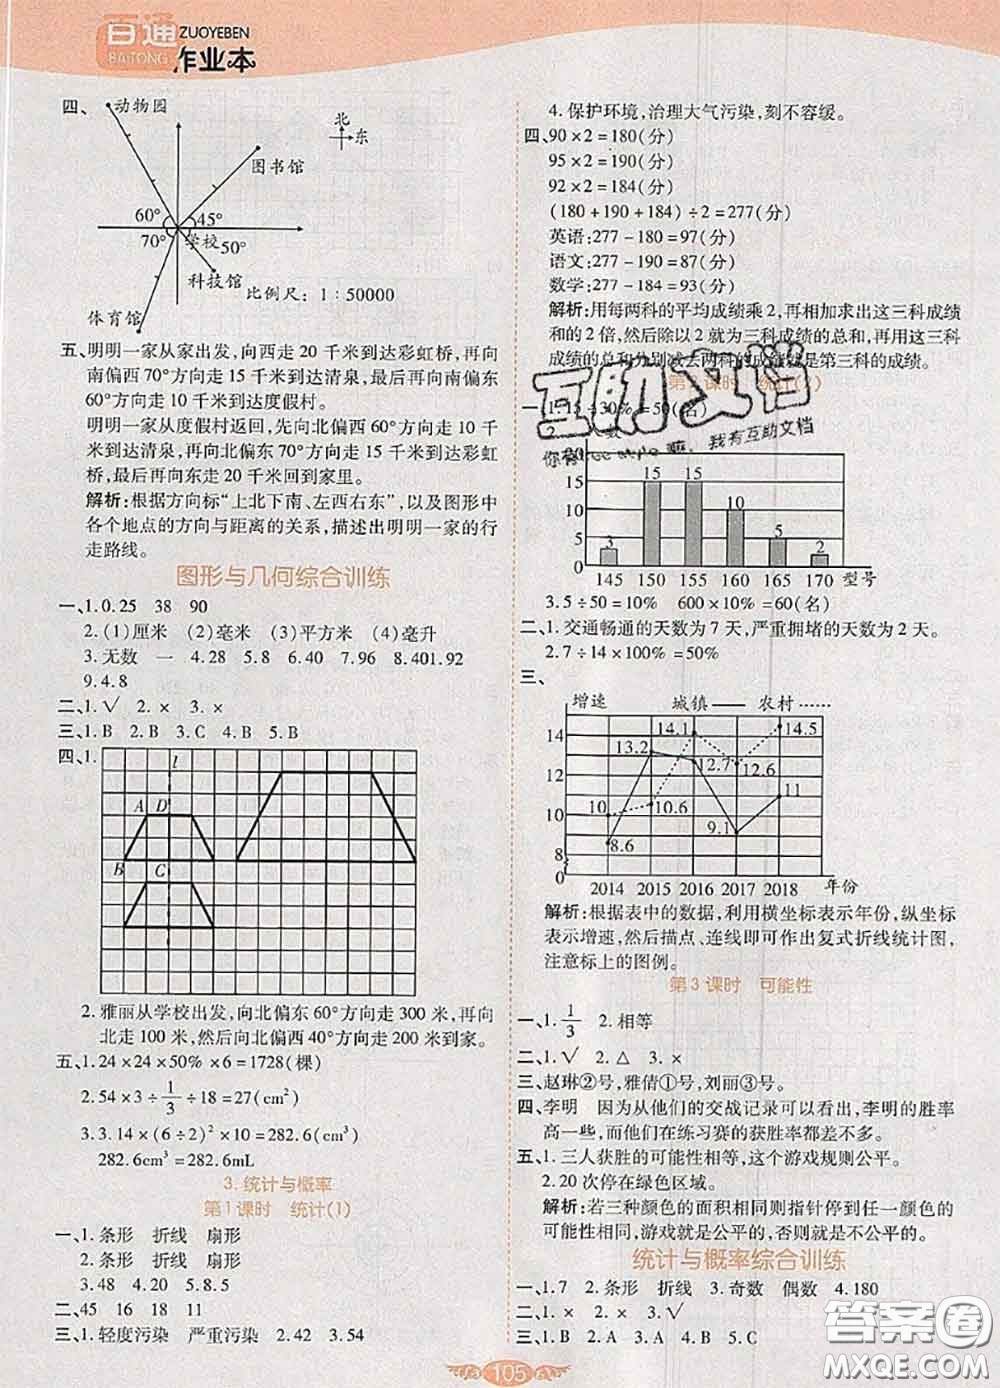 百通
BAITONG
ZUOYEBEN
作业本
四、
动物园
北
东
图书馆
60°
45°
70°
学校
50°
科技馆
体育馆
比例尺：1∶50000
五、明明一家从家出发,向西走 20 千米到达彩虹桥,再向
南偏西 70°方向走 15 千米到达清泉,再向南偏东
60°方向走 10 千米到达度假村。
明明一家从度假村返回,先向北偏西 60°方向走 10 千
米到达清泉,再向北偏东 70°方向走 15 千米到达彩虹
桥,最后再向东走 20 千米回到家里。
解析:根据方向标“上北下南、左西右东”,以及图形中
各个地点的方向与距离的关系,描述出明明一家的行
走路线。
图形与几何综合训练
一、1.0.25 38 90
2.(1)厘米 (2)毫米 (3)平方米 (4)毫升
3.无数 一 4.28 5.8 6.40 7.96 8.401.92
9.4.8
二、1.√ 2.× 3.×
三、1.B 2.B 3.C 4.B 5.B
四、1.
l
A D
B C
2.雅丽从学校出发,向北偏东 60°方向走 300 米,再向
北走 100 米,然后向北偏西 40°方向走 200 米到家。
五、1.24×24×50%×6=1728(棵)
2.54×3÷1/3÷18=27(cm)
3.3.14×(6÷2)²×10=282.6(cm³)
282.6cm³=282.6mL
3.统计与概率
第 1 课时 统计(1)
一、1.条形 折线 扇形
2.条形 折线 扇形
3.48 4.20 5.8.5
二、45 16 18 11
三、1.轻度污染 严重污染 2.42 3.54
4.保护环境,治理大气污染,刻不容缓。
四、90×2=180(分)
95×2=190(分)
92×2=184(分)
(180+190+184)÷2=277(分)
英语:277-180=97(分)
语文:277-190=87(分)
数学:277-184=93(分)
解析:用每两科的平均成绩乘 2,再相加求出这三科成绩
和的 2 倍,然后除以 2 就为三科成绩的总和,再用这三科
成绩的总和分别减去两科的成绩就是第三科的成绩。
课时 统计(2)
互助文档
一、1.15÷30%=50(名)
2.
人数
我有互助文档
20
15
10
5
0
3 15 15 10 5 2
145 150 155 160 165 170 型号
3.5÷50=10% 600×10%=60(名)
二、1.交通畅通的天数为 7 天,严重拥堵的天数为 2 天。
2.7÷14×100%=50%
三、
增速 城镇—— 农村……
14
13
12
11
10
9
8
0
13.2 14.1 14.5
12.7 12.6
10 10.6 11
8.6 9.1
2014 2015 2016 2017 2018 年份
解析:根据表中的数据,利用横坐标表示年份,纵坐标
表示增速,然后描点、连线即可作出复式折线统计图,
注意标上的图例。
第 3 课时 可能性
一、1.1/3 2.相等
二、1.√ 2.△ 3.×
三、赵琳②号,雅倩①号,刘丽③号。
四、李明 因为从他们的交战记录可以看出,李明的胜率
高一些,而他们在练习赛的获胜率都差不多。
五、1.三人获胜的可能性相等,这个游戏规则公平。
2.20 次停在绿色区域。
解析:若三种颜色的面积相同则指针停到任一颜色的
可能性相同,游戏就是公平的,否则就是不公平的。
统计与概率综合训练
一、1.7 2.条形 折线 3.奇数 偶数 4.180
二、1.× 2.× 3.√
三、1.B 2.A 3.A 4.B 5.
105
答案圈
MXQE.COM